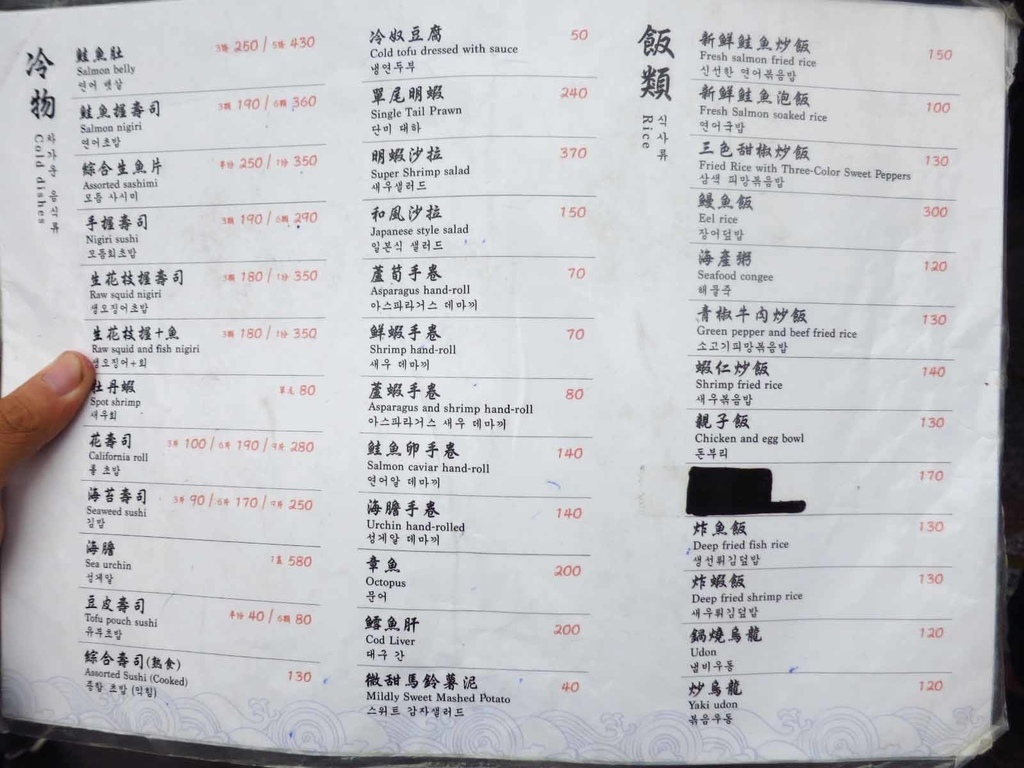 冷物
차가운 음식류
Cold dishes
鮭魚肚 3片 250 / 5片 430
Salmon belly
연어 뱃살
鮭魚握壽司 3顆 190 / 6顆 360
Salmon nigiri
연어초밥
綜合生魚片 半份 250 / 1份 350
Assorted sashimi
모듬 사시미
手握壽司 3顆 190 / 6顆 290
Nigiri sushi
모듬회초밥
生花枝握壽司 3顆 180 / 1份 350
Raw squid nigiri
생오징어초밥
生花枝握+魚 3顆 180 / 1份 350
Raw squid and fish nigiri
생오징어+회
牡丹蝦 單尾 80
Spot shrimp
새우회
花壽司 3片 100 / 6片 190 / 9片 280
California roll
롤 초밥
海苔壽司 3片 90 / 6片 170 / 9片 250
Seaweed sushi
김밥
海膽 1盒 580
Sea urchin
성게알
豆皮壽司 半份 40 / 6顆 80
Tofu pouch sushi
유부초밥
綜合壽司(熟食) 130
Assorted Sushi (Cooked)
모듬 초밥 (익힘)
冷奴豆腐 50
Cold tofu dressed with sauce
냉연두부
單尾明蝦 240
Single Tail Prawn
단미 대하
明蝦沙拉 370
Super Shrimp salad
새우샐러드
和風沙拉 150
Japanese style salad
일본식 샐러드
蘆筍手卷 70
Asparagus hand-roll
아스파라거스 데마끼
鮮蝦手卷 70
Shrimp hand-roll
새우 데마끼
蘆蝦手卷 80
Asparagus and shrimp hand-roll
아스파라거스 새우 데마끼
鮭魚卵手卷 140
Salmon caviar hand-roll
연어알 데마끼
海膽手卷 140
Urchin hand-rolled
성게알 데마끼
章魚 200
Octopus
문어
鱈魚肝 200
Cod Liver
대구 간
微甜馬鈴薯泥 40
Mildly Sweet Mashed Potato
스위트 감자샐러드
飯類
식사류
Rice
新鮮鮭魚炒飯 150
Fresh salmon fried rice
신선한 연어볶음밥
新鮮鮭魚泡飯 100
Fresh Salmon soaked rice
연어국밥
三色甜椒炒飯 130
Fried Rice with Three-Color Sweet Peppers
삼색 피망볶음밥
鰻魚飯 300
Eel rice
장어덮밥
海產粥 120
Seafood congee
해물죽
青椒牛肉炒飯 130
Green pepper and beef fried rice
소고기피망볶음밥
蝦仁炒飯 140
Shrimp fried rice
새우볶음밥
親子飯 130
Chicken and egg bowl
돈부리
170
炸魚飯 130
Deep fried fish rice
생선튀김덮밥
炸蝦飯 130
Deep fried shrimp rice
새우튀김덮밥
鍋燒烏龍 120
Udon
냄비우동
炒烏龍 120
Yaki udon
볶음우동